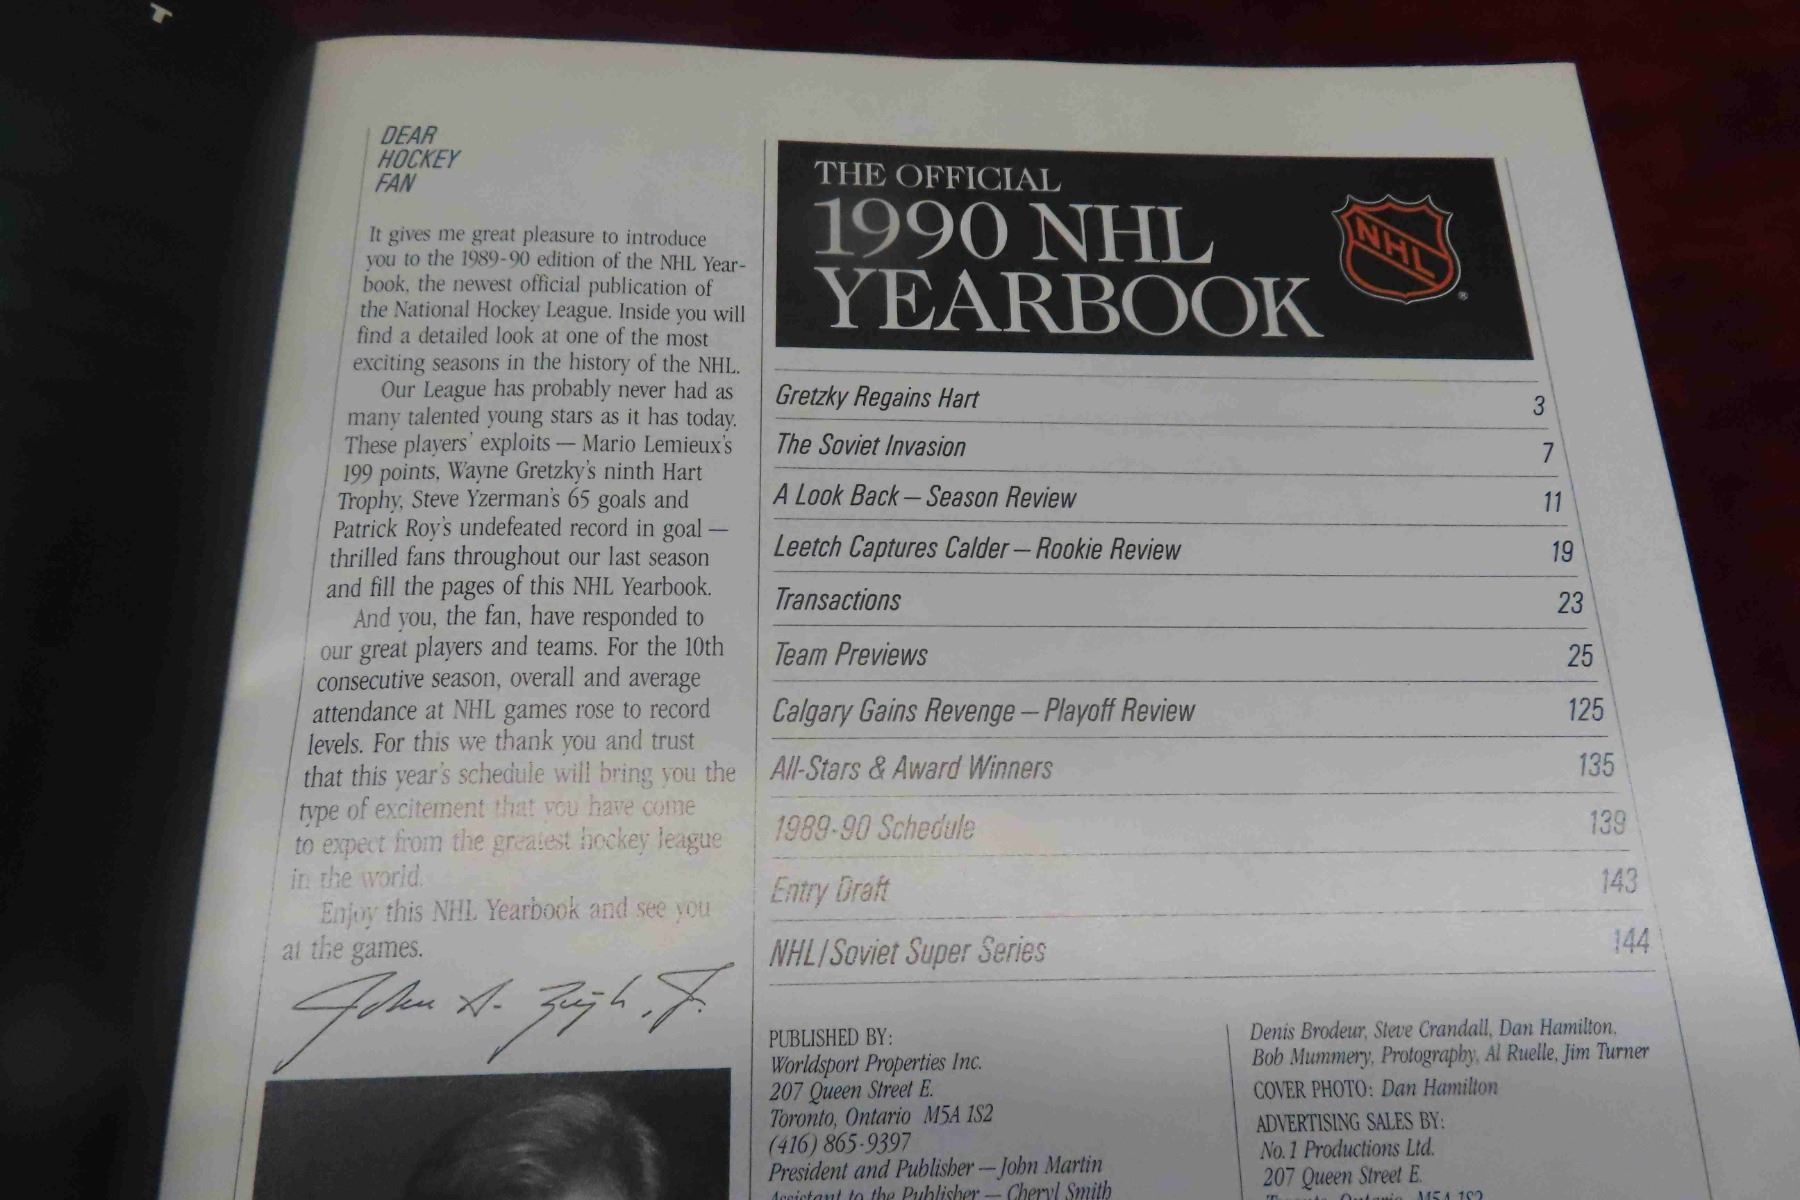 T
DEAR
HOCKEY
FAN
It gives me great pleasure to introduce
you to the 1989-90 edition of the NHL Year-
book, the newest official publication of
the National Hockey League. Inside you will
find a detailed look at one of the most
exciting seasons in the history of the NHL.
Our League has probably never had as
many talented young stars as it has today.
These players' exploits — Mario Lemieux's
199 points, Wayne Gretzky's ninth Hart
Trophy, Steve Yzerman's 65 goals and
Patrick Roy's undefeated record in goal —
thrilled fans throughout our last season
and fill the pages of this NHL Yearbook.
And you, the fan, have responded to
our great players and teams. For the 10th
consecutive season, overall and average
attendance at NHL games rose to record
levels. For this we thank you and trust
that this year's schedule will bring you the
type of excitement that you have come
to expect from the greatest hockey league
in the world.
Enjoy this NHL Yearbook and see you
at the games.
John A. Ziegler, Jr.
THE OFFICIAL
1990 NHL
YEARBOOK
NHL
®
Gretzky Regains Hart 3
The Soviet Invasion 7
A Look Back — Season Review 11
Leetch Captures Calder — Rookie Review 19
Transactions 23
Team Previews 25
Calgary Gains Revenge — Playoff Review 125
All-Stars & Award Winners 135
1989-90 Schedule 139
Entry Draft 143
NHL/Soviet Super Series 144
PUBLISHED BY:
Worldsport Properties Inc.
207 Queen Street E.
Toronto, Ontario M5A 1S2
(416) 865-9397
President and Publisher — John Martin
Assistant to the Publisher — Cheryl Smith
Denis Brodeur, Steve Crandall, Dan Hamilton,
Bob Mummery, Protography, Al Ruelle, Jim Turner
COVER PHOTO: Dan Hamilton
ADVERTISING SALES BY:
No. 1 Productions Ltd.
207 Queen Street E.
Toronto, Ontario M5A 1S2